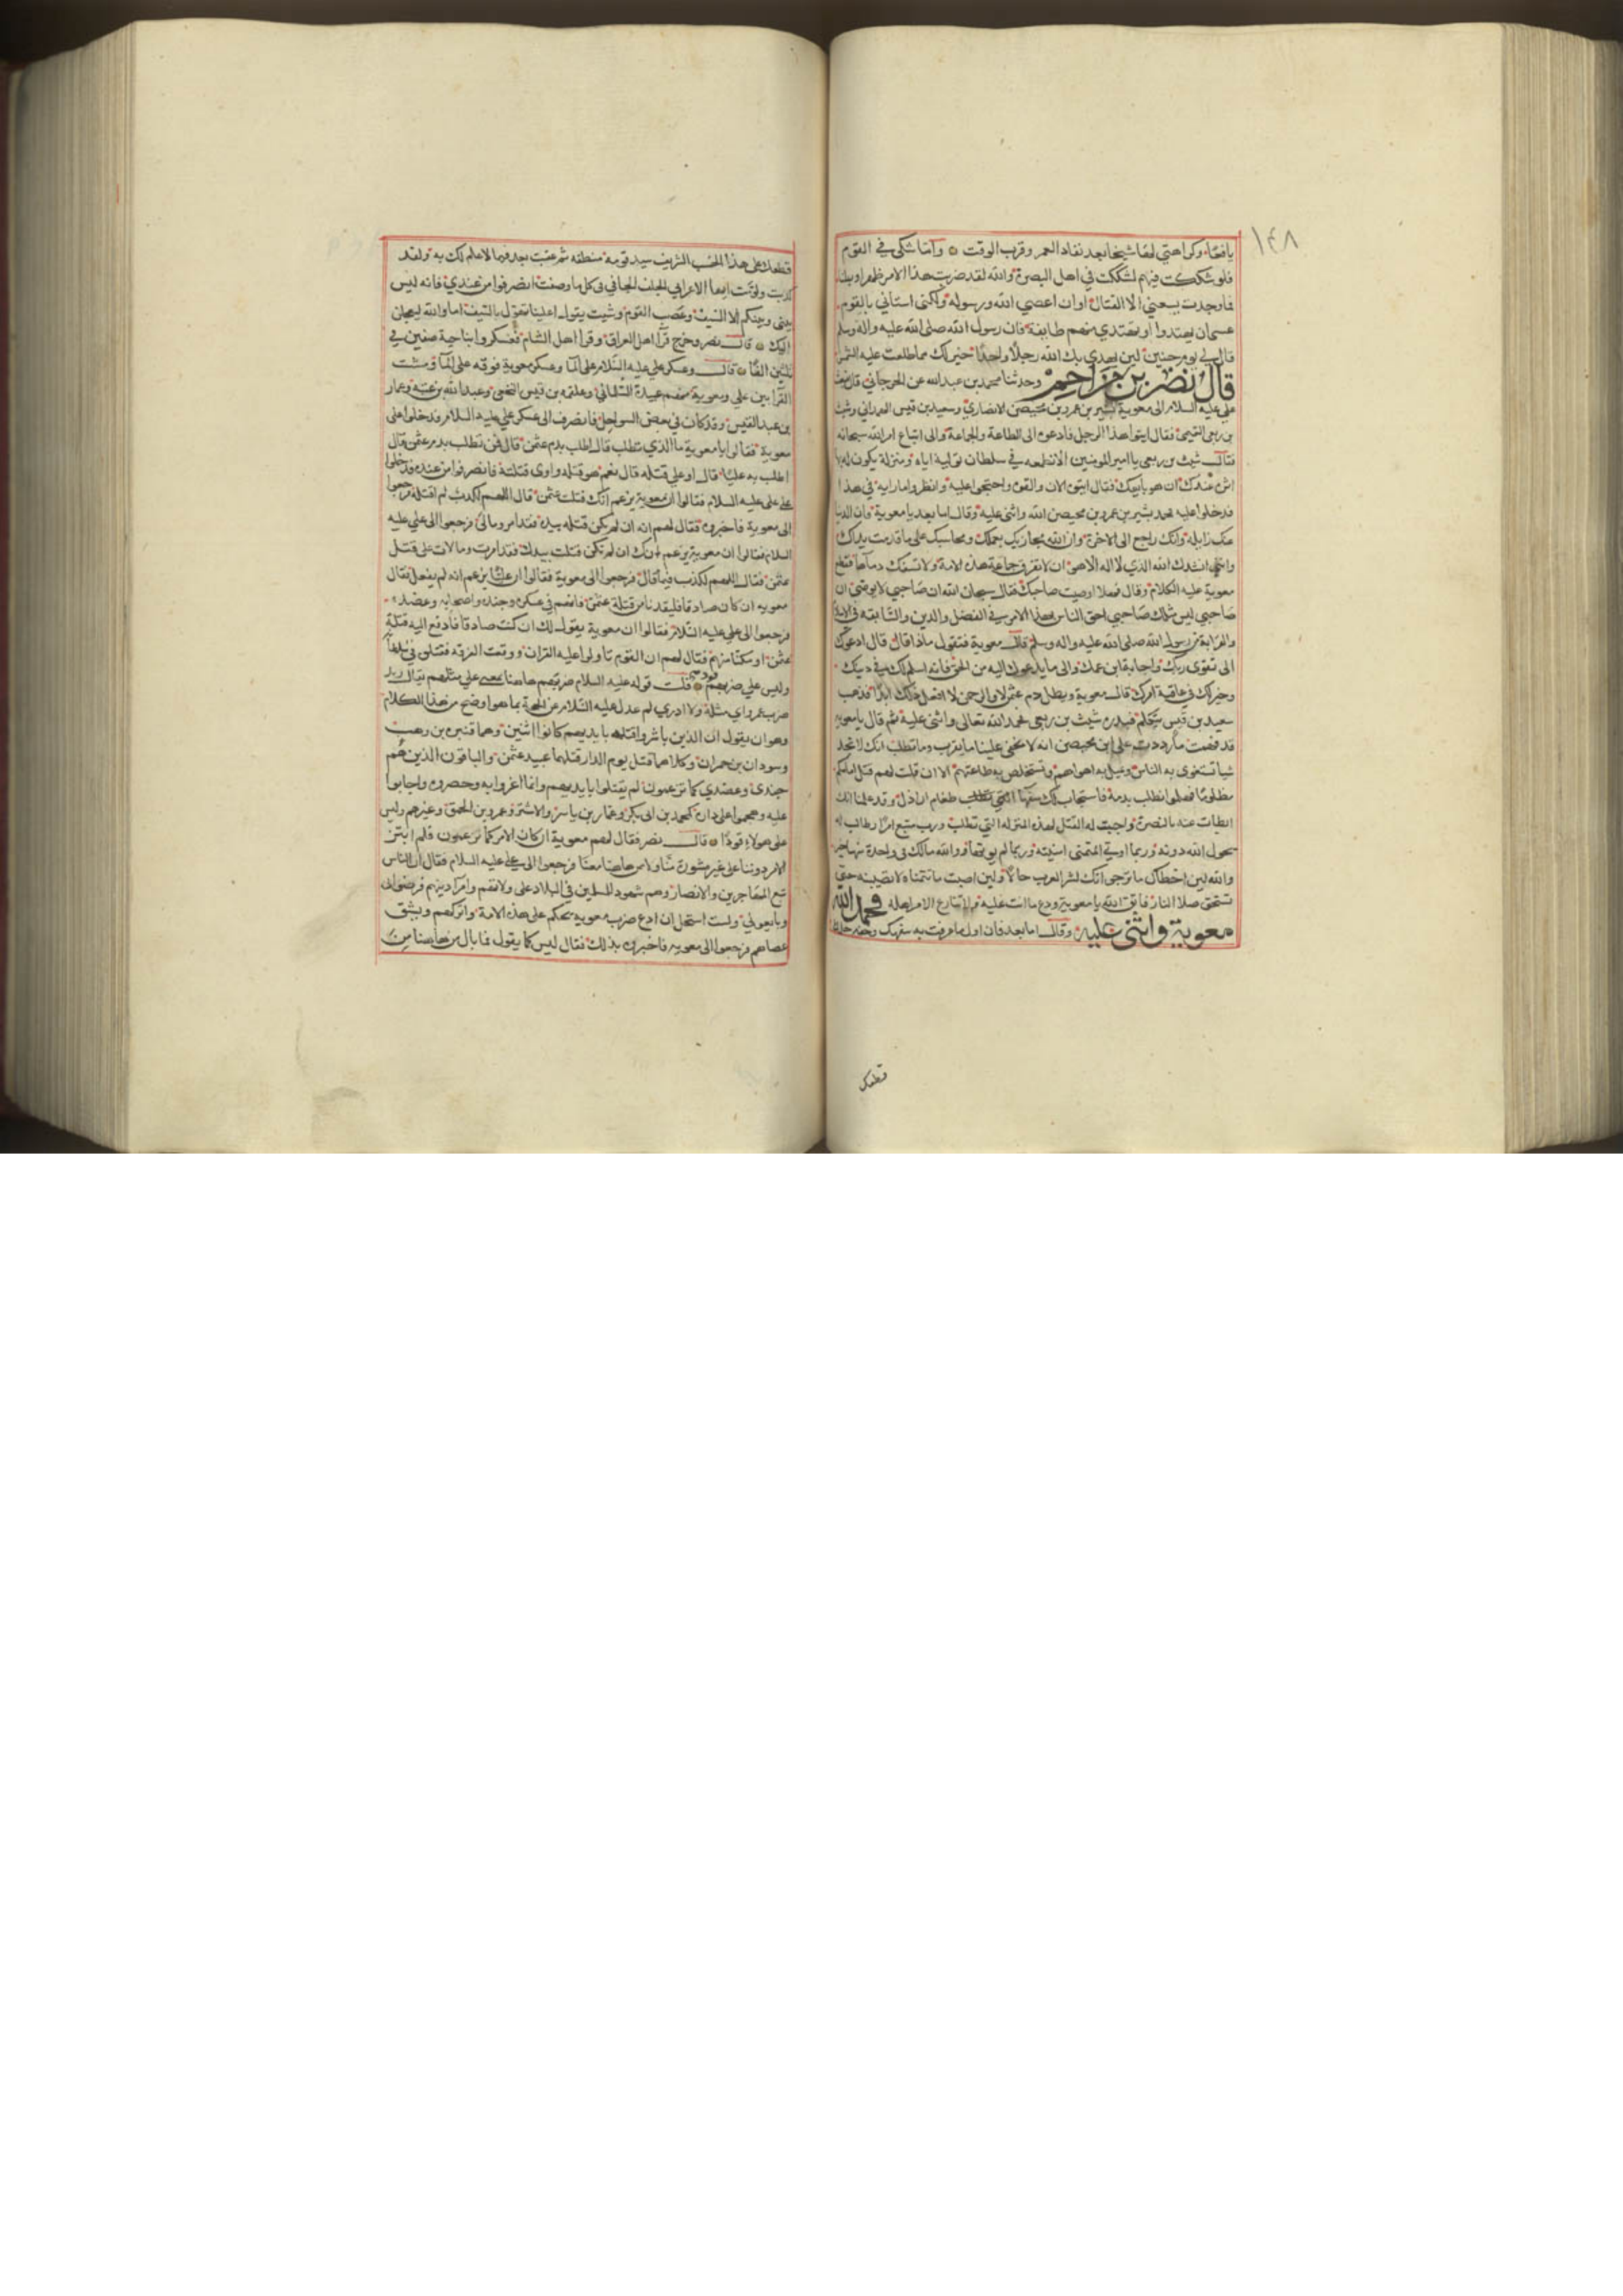 ١٤٨
يافعًا وكراهتي لها شيخا بعد نفاد العمر وقرب الوقت واما شكي في القوم
فلو شككت فيهم لشككت في اهل البصرة والله لقد ضربت هذا الامر ظهرا وبطنا
فما وجدت يسعني الا القتال او ان اعصي الله ورسوله ولكني استاني بالقوم
عسى ان يهتدوا او يهتدي منهم طايفة فان رسول الله صلى الله عليه واله وسلم
قال لي يوم حنين لين يهدي بك الله رجلا واحدا خير لك مما طلعت عليه الشمس
قال نصر بن مزاحم وحدثنا محمد بن عبد الله عن الجرجاني قال فبعث
علي عليه السلام الى معوية بشير بن عمرو بن محيصن الانصاري وسعيد بن قيس الهمداني وشبث
بن ربعي التميمي فقال ايتوا هذا الرجل فادعوه الى الطاعة والجماعة والى اتباع امر الله سبحانه
فقال شبث بن ربعي يا امير المومنين الا نطمعه في سلطان توليه اياه ومنزلة يكون له بها
اثر عندك ان هو بايعك فقال ايتوه الان والقوه واحتجوا عليه وانظروا ما رايه في هذا
فدخلوا عليه فحمد بشير بن عمرو بن محيصن الله واثنى عليه وقال اما بعد يا معوية فان الدنيا
عنك زايلة وانك راجع الى الاخرة وان الله مجازيك بعملك ومحاسبك على ما قدمت يداك
وانني انشدك الله الذي لا اله الا هو ان لا تفرق جماعة هذه الامة ولا تسفك دماها فقطع
معوية عليه الكلام وقال فهلا اوصيت صاحبك فقال سبحان الله ان صاحبي لا يوصى ان
صاحبي ليس مثلك صاحبي احق الناس بهذا الامر في الفضل والدين والسابقة في الاسلام
والقرابة من رسول الله صلى الله عليه واله وسلم قال معوية فتقول ماذا قال قال ادعوك
الى تقوى ربك واجابة ابن عمك والى ما يدعوك اليه من الحق فانه اسلم لك في دينك
وخير لك في عاقبة امرك قال معوية ويطل دم عثمن لا والرحمن لا افعل ذلك ابدا فذهب
سعيد بن قيس يتكلم فبدره شبث بن ربعي فحمد الله تعالى واثنى عليه ثم قال يا معوية
قد فهمت ما رددت على ابن محيصن انه لا يخفى علينا ما يقرب وما تطلب انك لا تجد
شيا تستغوي به الناس وتميل به اهواهم وتستخلص به طاعتهم الا ان قلت لهم قتل امامكم
مظلوما فهلموا نطلب بدمه فاستجاب لك سفها طغام ارذل وقد علمنا انك
ابطات عنه بالنصرة واحببت له القتل لهذه المنزله التي تطلب ورب مبتغ امرا وطالب له
يحول الله دونه وربما اوتي المتمني امنيته وربما لم يوتها ووالله مالك في واحدة منها خير
والله لين اخطاك ما ترجو انك لشر العرب حالا ولين اصبت ما تتمناه لا تصيبه حتى
تستحق صلا النار فاتق الله يا معوية ودع ما انت عليه ولا تنازع الامر اهله فحمد الله
معوية واثنى عليه وقال اما بعد فان اول ما عرفت به سفهك وخفة حلمك
قطعك
قطعك على هذا الحسب الشريف سيد قومه منطقه ثم عتبت بعد فيما لا علم لك به ولقد
كذبت ولوت ايها الاعرابي الجلف الجافي في كل ما وصفت انصرفوا من عندي فانه ليس
بيني وبينكم الا السيف وغضب القوم وشبث يقول اعلينا تهول بالسيف اما والله ليعجلن
اليك قال نصر وخرج قرا اهل العراق وقرا اهل الشام فعسكروا بناحية صفين في
ثلثين الفا قال وعسكر علي عليه السلام على الما وعسكر معوية فوقه على الما ومشت
القرا بين علي ومعوية منهم عبيدة السلماني وعلقمه بن قيس النخعي وعبد الله بن عتبه وعمار
بن عبد القيس وقد كان في بعض السواحل فانصرف الى عسكر علي عليه السلام فدخلوا على
معوية فقالوا يا معوية ما الذي تطلب قال اطلب بدم عثمن قال فمن تطلب بدم عثمن قال
اطلب به عليا قال اوعلي قتله قال نعم هو قتله واوى قتلته فانصرفوا من عنده فدخلوا
على علي عليه السلام فقالوا ان معوية يزعم انك قتلت عثمن قال اللهم لكذب لم اقتله فرجعوا
الى معوية فاخبروه فقال لهم انه ان لم يكن قتله بيده فقد امر ومالى فرجعوا الى علي عليه
السلام فقالوا ان معوية يزعم انك ان لم تكن قتلت بيدك فقد امرت ومالات على قتل
عثمن فقال اللهم لكذب فيما قال فرجعوا الى معوية فقالوا ان عليا يزعم انه لم يفعل فقال
معويه ان كان صادقا فليقدنا من قتلة عثمن فانهم في عسكره وجنده واصحابه وعضده
فرجعوا الى علي عليه السلام فقالوا ان معوية يقول لك ان كنت صادقا فادفع الينا قتلة
عثمن او مكنا منهم فقال لهم ان القوم تاولوا عليه القران ووقعت الفرقه فقتلوه في سلطانه
وليس على ضربهم قود قلت قوله عليه السلام ضربهم هاهنا بمعنى على مثلهم يقال زيد
ضرب عمرو اي مثله ولا ادري لم عدل عليه السلام عن الحجة بما هو اوضح من هذا الكلام
وهو ان يقول ان الذين باشروا قتله بايديهم كانوا اثنين وهما قتيره بن وهب
وسودان بن حمران وكلاهما قتل يوم الدار قتلهما عبيد عثمن والباقون الذين هم
جندي وعضدي كما تزعمون لم يقتلوا بايديهم وانما اغروا به وحصروه واجلبوا
عليه وهجموا على داره كمحمد بن ابي بكر وعمار بن ياسر والاشتر وعمرو بن الحمق وغيرهم وليس
على هولاء قودا قال نصر فقال لهم معوية ان كان الامر كما تزعمون فلم ابتز
الامر دوننا على غير مشورة منا ولا من هاهنا معنا فرجعوا الى علي عليه السلام فقال ان الناس
تبع المهاجرين والانصار وهم شهود للمسلمين في البلاد على ولاتهم وامرا دينهم فرضوا بي
وبايعوني ولست استحل ان ادع ضرب معويه يحكم على هذه الامة واتركهم ويشق
عصاهم فرجعوا الى معويه فاخبروه بذلك فقال ليس كما يقول فما بال من هاهنا من